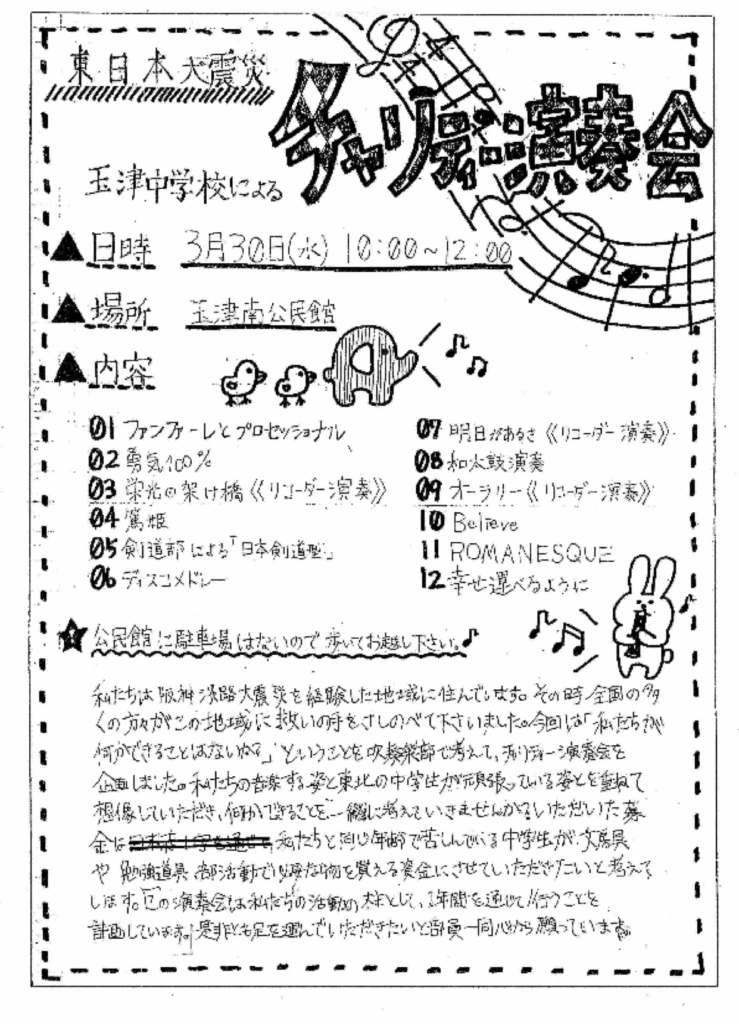 東日本大震災
チャリティー演奏会
玉津中学校による
▲日時 3月30日(水) 10:00~12:00
▲場所 玉津南公民館
▲内容
01 ファンファーレとプロセッショナル
02 勇気100%
03 栄光の架け橋《リコーダー演奏》
04 篤姫
05 剣道部による「日本剣道型」
06 ディスコメドレー
07 明日があるさ《リコーダー演奏》
08 和太鼓演奏
09 オーラリー《リコーダー演奏》
10 Believe
11 ROMANESQUE
12 幸せ運べるように
★公民館に駐車場はないので歩いてお越し下さい。♪
私たちは阪神淡路大震災を経験した地域に住んでいます。その時、全国の多
くの方々がこの地域に救いの手をさしのべて下さいました。今回は「私たちが
何かできることはないか?」ということを吹奏楽部で考えて、チャリティー演奏会を
企画しました。私たちの音楽する姿と東北の中学生が頑張っている姿とを重ねて
想像していただき、何かできることを一緒に考えていきませんか?いただいた募
金は私たちと同じ年齢で苦しんでいる中学生が、文房具
や勉強道具、部活動で必要な物を買える資金にさせていただきたいと考えて
います。この演奏会は私たちの活動の柱として、1年間を通じて行うことを
計画しています。是非とも足を運んでいただきたいと部員一同心から願っています。